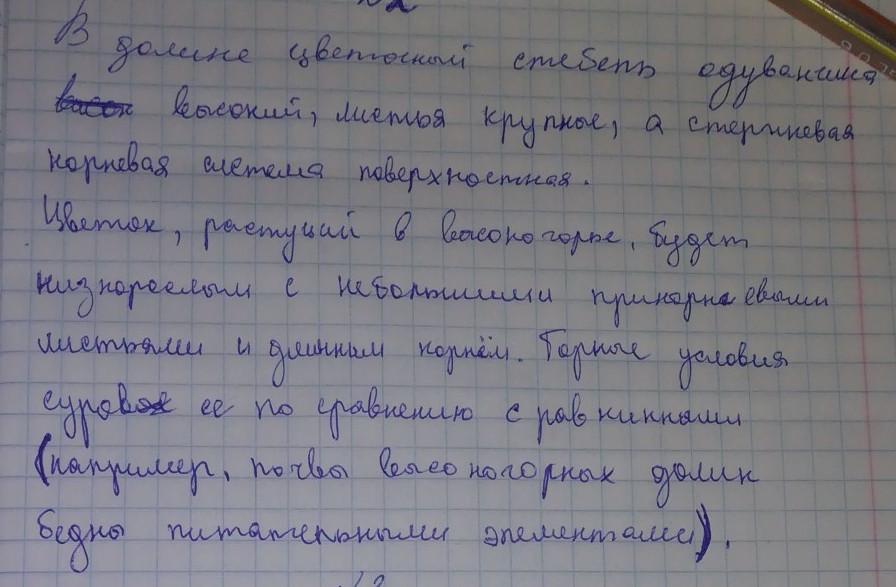 №2
В долине цветочный стебель одуванчика
высокий, листья крупные, а стержневая
корневая система поверхностная.
Цветок, растущий в высокогорье, будет
низкорослым с небольшими прикорневыми
листьями и длинным корнём. Горные условия
суровее по сравнению с равнинными
(например, почвы высокогорных долин
бедны питательными элементами).